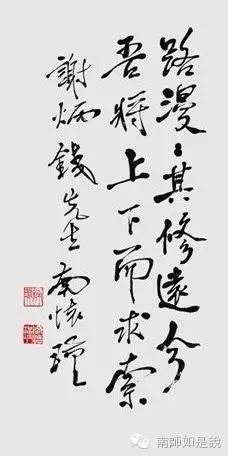 路漫〻其修遠兮
吾將上下而求索
謝炳錢先生 南懷瑾
南師如是說